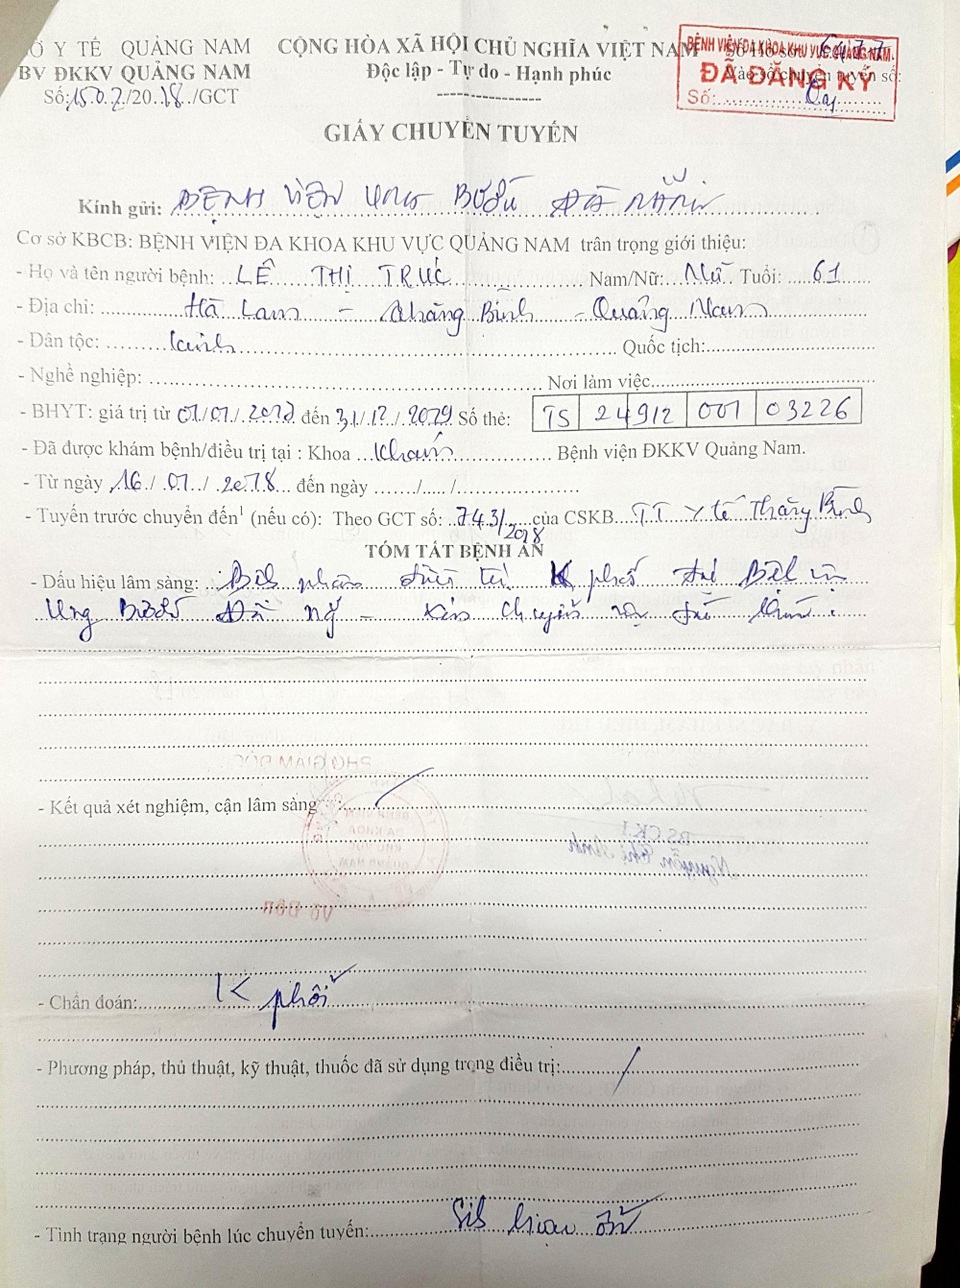 Ở Y TẾ QUẢNG NAM
BV ĐKKV QUẢNG NAM
Số:1507/2018/GCT
CỘNG HÒA XÃ HỘI CHỦ NGHĨA VIỆT NAM
Độc lập - Tự do - Hạnh phúc
BỆNH VIỆN ĐA KHOA KHU VỰC QUẢNG NAM
ĐÃ ĐĂNG KÝ
Số:
GIẤY CHUYỂN TUYẾN
Kính gửi: BỆNH VIỆN UNG BƯỚU ĐÀ NẴNG
Cơ sở KBCB: BỆNH VIỆN ĐA KHOA KHU VỰC QUẢNG NAM trân trọng giới thiệu:
- Họ và tên người bệnh: LÊ THỊ TRÚC Nam/Nữ: Nữ Tuổi: 61
- Địa chỉ: Hà Lam - Thăng Bình - Quảng Nam
- Dân tộc: kinh Quốc tịch:
- Nghề nghiệp: Nơi làm việc
- BHYT: giá trị từ 01/01/ đến 31/12/ Số thẻ: TS 24912 001 03226
- Đã được khám bệnh/điều trị tại : Khoa Khám Bệnh viện ĐKKV Quảng Nam.
- Từ ngày 16/01/2018 đến ngày ....../...../
- Tuyến trước chuyển đến¹ (nếu có): Theo GCT số: 743/2018 của CSKB TT Y tế Thăng Bình
TÓM TẮT BỆNH ÁN
- Dấu hiệu lâm sàng: K phổi
Ung Bướu Đà Nẵng - xin chuyển
PHÓ GIÁM ĐỐC
- Kết quả xét nghiệm, cận lâm sàng :
BỆNH VIỆN ĐA KHOA KHU VỰC QUẢNG NAM
BS.CKI
Nguyễn Thị Ánh
- Chẩn đoán: K phổi
- Phương pháp, thủ thuật, kỹ thuật, thuốc đã sử dụng trong điều trị:
- Tình trạng người bệnh lúc chuyển tuyến: